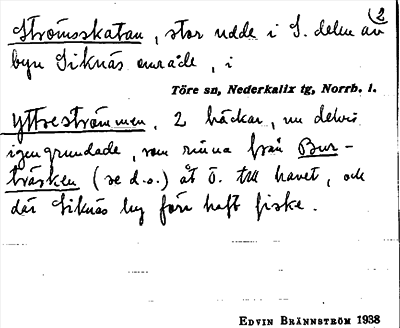 2
Strömsskatan, stor udde i S. delen av
byn Siknäs område, i
Töre sn, Nederkalix tg, Norrb. l.
Yttreströmmen, 2 bäckar, nu delvis
igengrundade, som rinna från Bur-
träsken (se d.o.) åt ö. till havet, och
där Siknäs by förr haft fiske.
EDVIN BRÄNNSTRÖM 1938